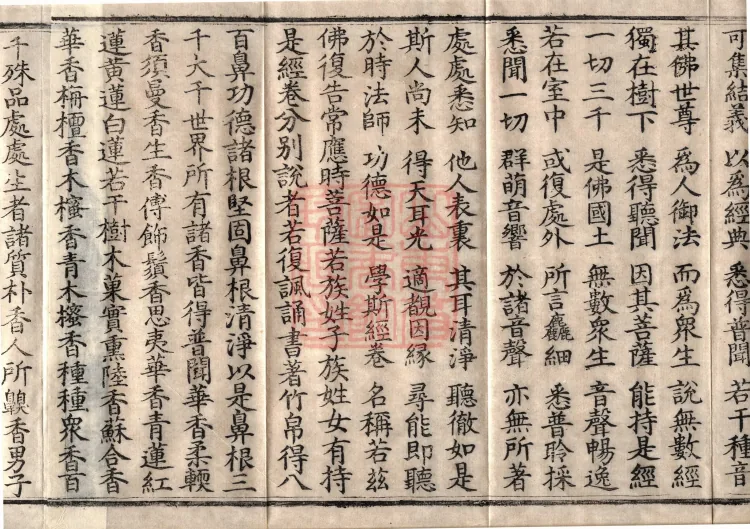 可集結義 以為經典 悉得普聞 若干種音
其佛世尊 為人御法 而為眾生 說無數經
獨在樹下 悉得聽聞 因其菩薩 能持是經
一切三千 是佛國土 無數衆生 音聲暢逸
若在室中 或復處外 所言麤細 悉普聆採
悉聞一切 群萌音響 於諸音聲 亦無所著
處處悉知 他人表裏 其耳清淨 聽徹如是
斯人尚未 得天耳光 適觀因緣 尋能即聽
於時法師 功德如是 學斯經卷 名稱若茲
佛復告常應時菩薩若族姓子族姓女有持
是經卷分別說者若復諷誦書著竹帛得八
百鼻功德諸根堅固鼻根清淨以是鼻根三
千大千世界所有諸香皆得普聞華香柔軟
香須曼香生香傅飾鬚香思夷華香青蓮紅
蓮黃蓮白蓮若干樹木菓實熏陸香蘇合香
華香栴檀香木櫁香青木櫁香種種衆香百
千殊品處處生者諸質朴香人所齅香男子